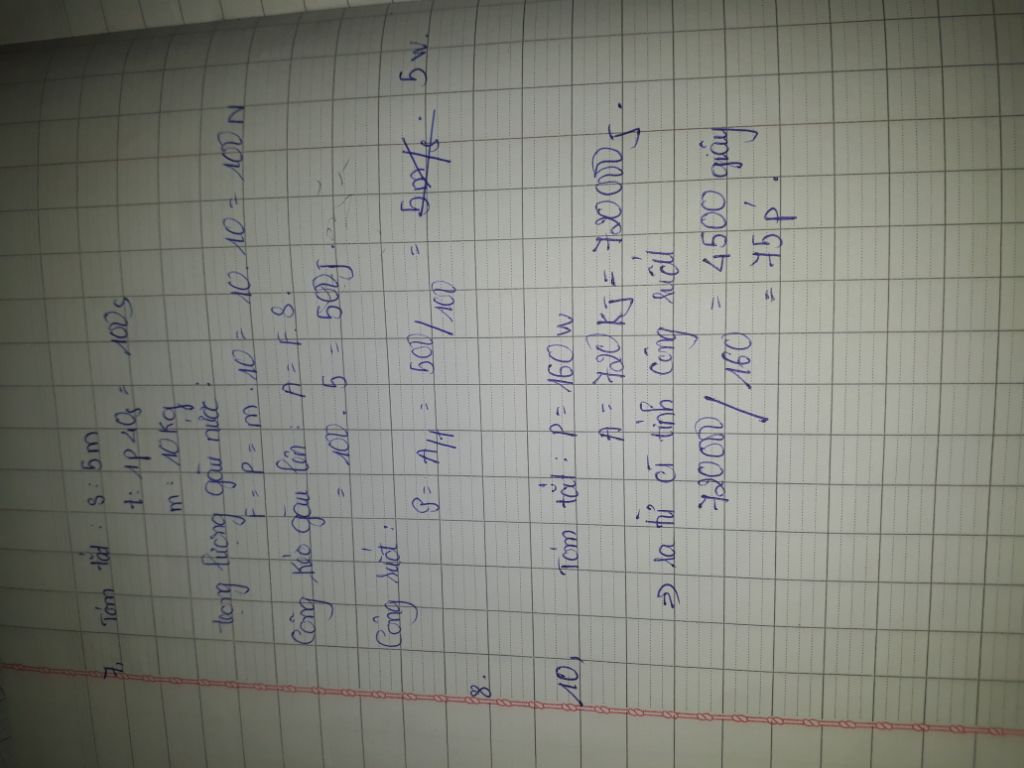 7, Tóm tắt : S : 5m
t : 1p40s = 100s
m : 10kg
trọng lượng gầu nước :
F = P = m . 10 = 10 . 10 = 100 N
Công kéo gầu lên : A = F. S.
= 100 . 5 = 500J.
Công suất :
P = A/t = 500/100 = 5 w.
8.
10, Tóm tắt : P = 160 w
A = 720 KJ = 720000 J.
=> ta từ CT tính công suất
720000 / 160 = 4500 giây
= 75 p'.